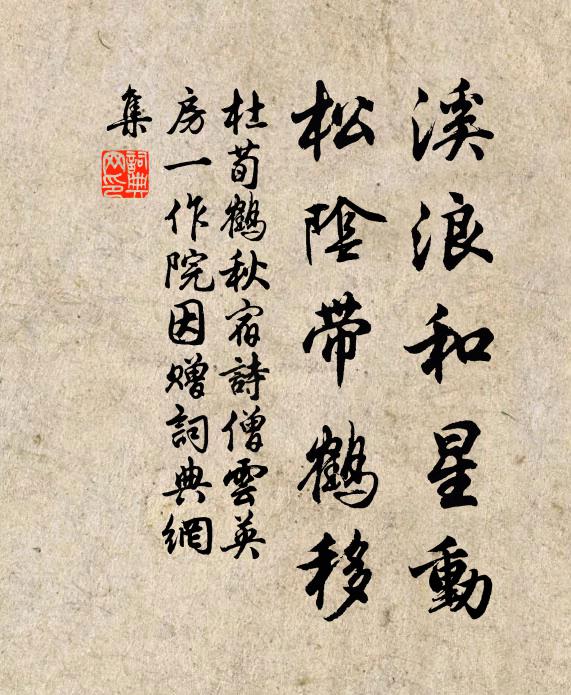 溪浪和星動
松陰帶鶴移
杜荀鶴秋宿詩僧雲英
房一作院因贈詞典網
集
詞典網印